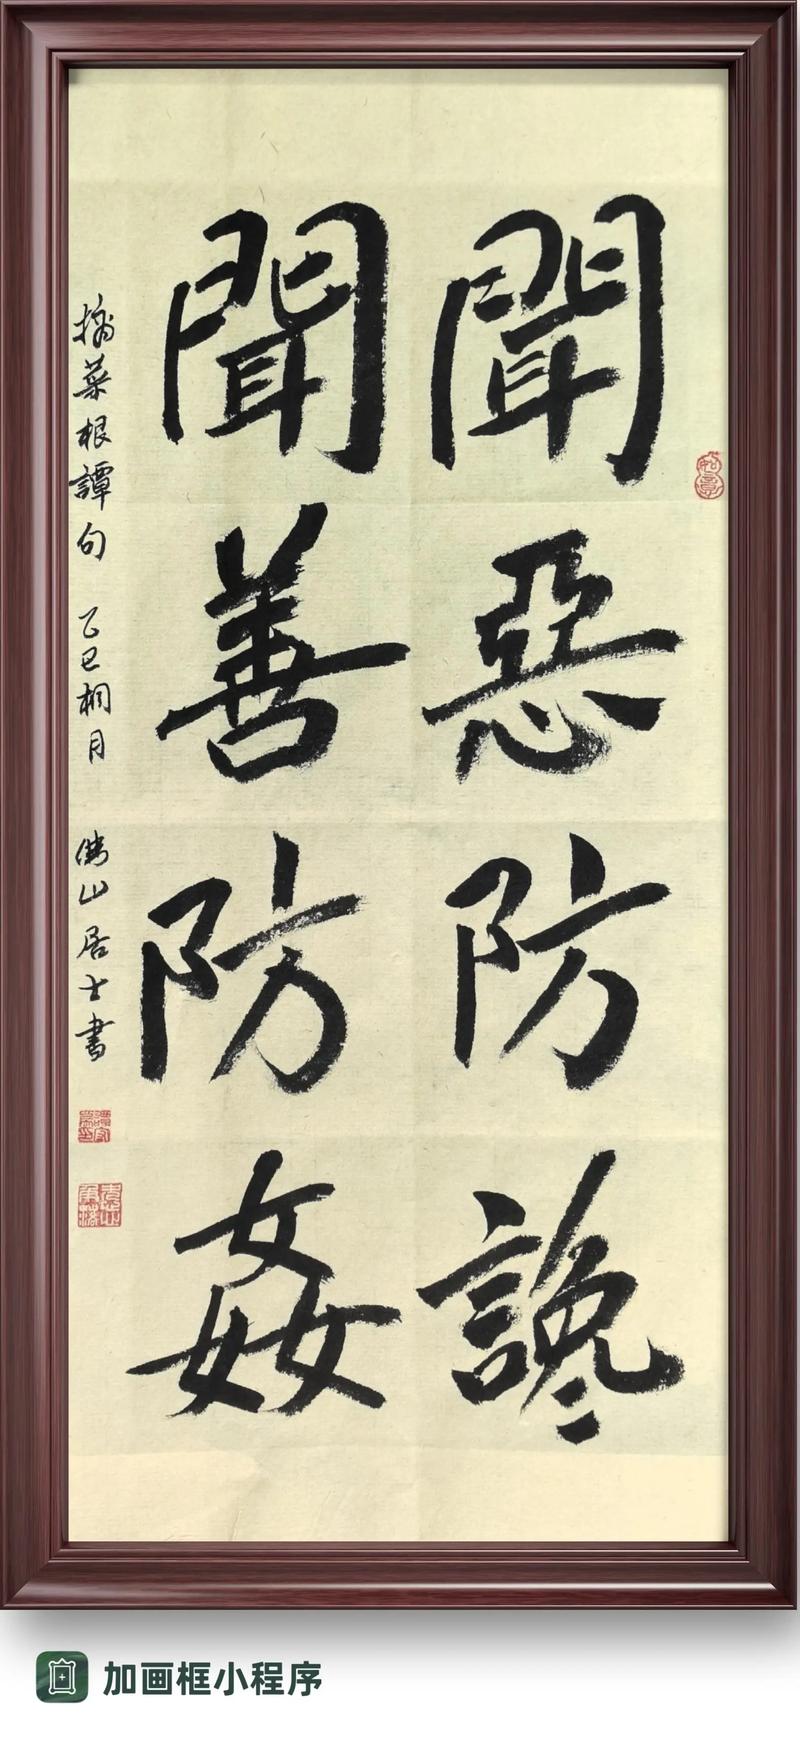 聞惡防讒
聞善防姦
摘菜根譚句 乙巳桐月 佛山居士書
如意
加画框小程序